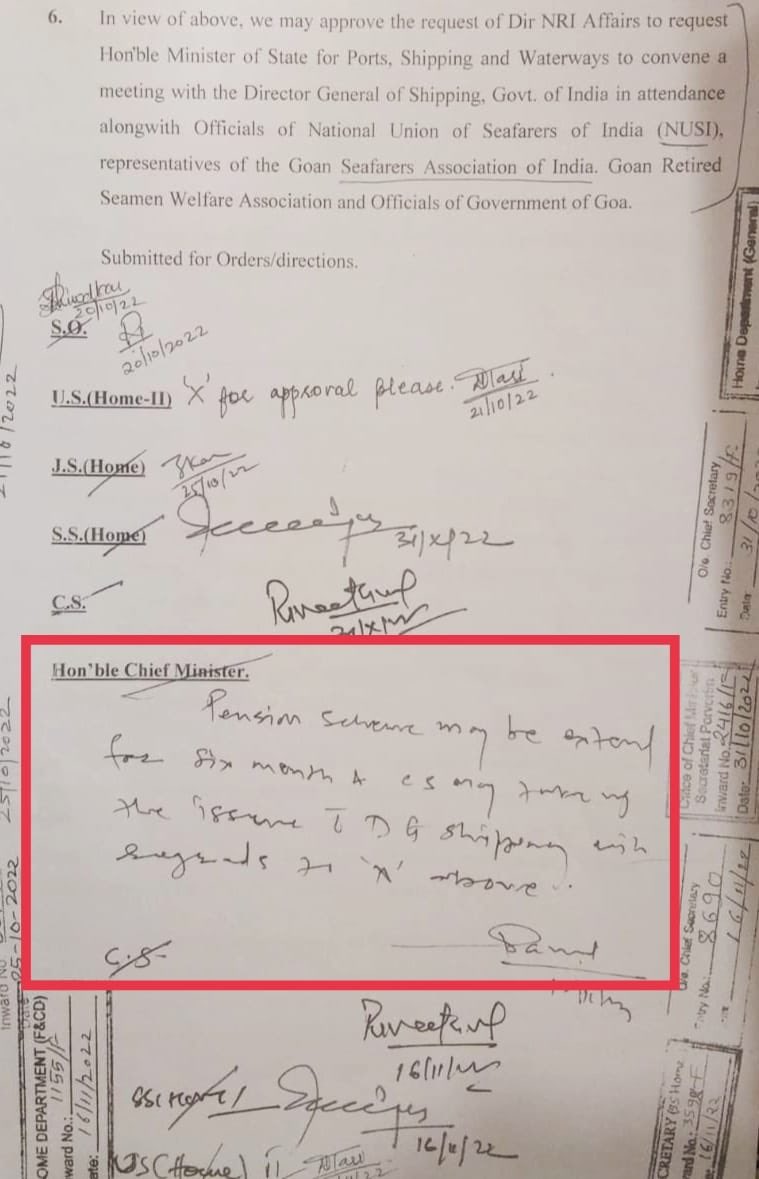 6. In view of above, we may approve the request of Dir NRI Affairs to request
Hon'ble Minister of State for Ports, Shipping and Waterways to convene a
meeting with the Director General of Shipping, Govt. of India in attendance
alongwith Officials of National Union of Seafarers of India (NUSI),
representatives of the Goan Seafarers Association of India. Goan Retired
Seamen Welfare Association and Officials of Government of Goa.
Submitted for Orders/directions.
20/10/22
S.O.
20/10/2022
U.S.(Home-II) 'X' for approval please.
21/10/22
J.S.(Home)
25/10/22
S.S.(Home) 31/X/22
C.S.
Hon'ble Chief Minister.
Pension scheme may be extend
for six month & CS may
the issue DG Shipping with
regards to 'X' above.
C.S.
16/11/22
16/11/22
US(Home) II
Home Department (General)
O/o. Chief Secretary
Entry No.: 8319/F
Date: 31/10/
Office of Chief Minister
Secretariat Porvorim
Inward No.
Date: 31/10/2022
O/o. Chief Secretary
Entry No.: 8690
16/11/22
Inward No.: 3598-F
16/11/22
25/10/2022
Inward No
25-10-2022
HOME DEPARTMENT (F&CD)
Inward No.: 1155/F
Date: 16/11/2022